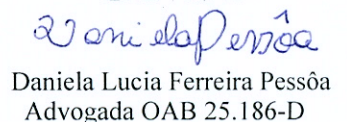 Daniela Pessôa
Daniela Lucia Ferreira Pessôa
Advogada OAB 25.186-D